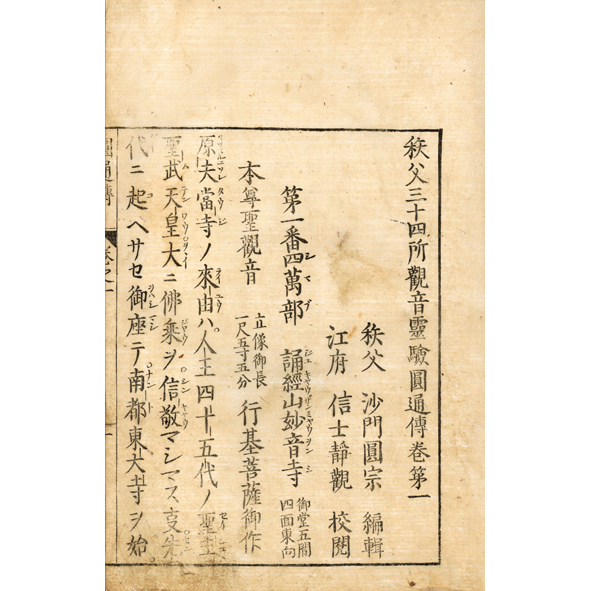 秩父三十四所觀音靈驗圓通傳卷第一
秩父 沙門圓宗 編輯
江府 信士靜觀 校閱
第一番四萬部 誦經山妙音寺 御堂五間四面東向
本尊聖觀音 立像御長一尺五寸五分 行基菩薩御作
原夫當寺ノ來由ハ人王四十五代ノ聖主
聖武天皇大ニ佛乘ヲ信敬マシマス
代ニ起ヘサセ御座テ南都東大寺ヲ始
圓通傳 卷之一